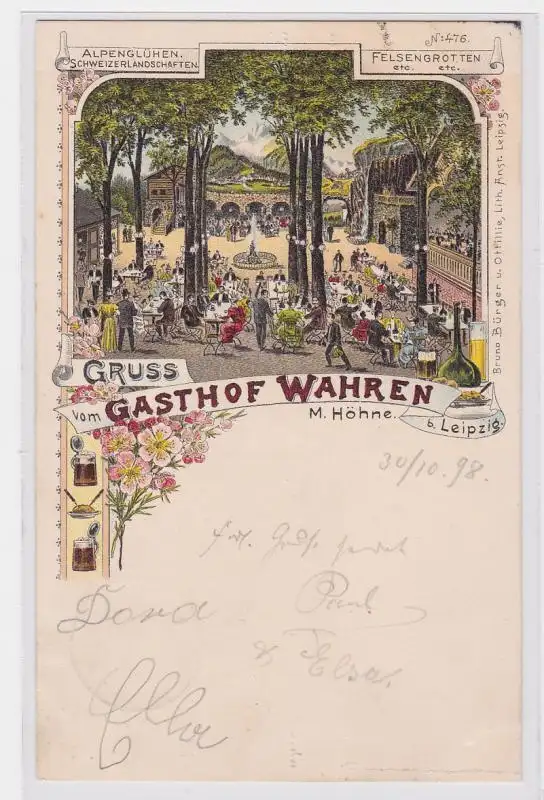 No: 476.
ALPENGLÜHEN.
SCHWEIZERLANDSCHAFTEN.
FELSENGROTTEN
etc. etc.
Bruno Bürger u. Ottillie, Lith. Anst. Leipzig.
GRUSS
vom GASTHOF WAHREN
M. Höhne.
b. Leipzig.
30/10. 98.
frdl. Gruß sendet
Paul
Dora
& Elsa.